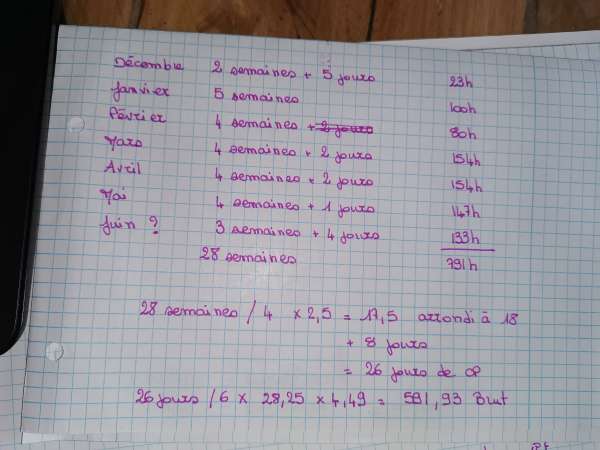 Décembre 2 semaines + 5 jours 23h
Janvier 5 semaines 100h
Février 4 semaines + 2 jours 80h
Mars 4 semaines + 2 jours 154h
Avril 4 semaines + 2 jours 154h
Mai 4 semaines + 1 jours 147h
Juin ? 3 semaines + 4 jours 133h
28 semaines 791h
28 semaines / 4 x 2,5 = 17,5 arrondi à 18
+ 8 jours
= 26 jours de CP
26 jours / 6 x 28,25 x 4,49 = 591,93 Brut